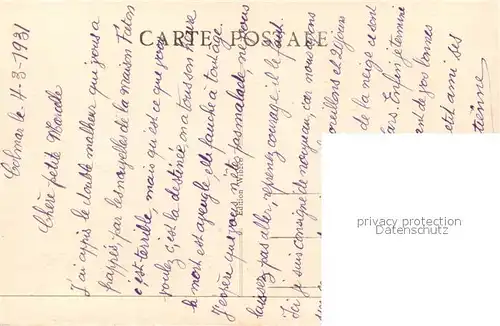 CARTE POSTALE
Colmar le 11-3-1931
Chère petite Marcelle
J'ai appris le double malheur qui vous a
frappés, par les nouvelle de la maison
c'est terrible, mais qu'est ce que vous
voulez c'est la destinée, on a tous son heure
la mort est aveugle, elle fauche à tout age.
J'espère que vous n'êtes pas malade, ne vous
laissez pas aller, reprenez courage il le faut.
Ici je suis consigné de nouveau, car nous avons
oreillons et 21 jours
de la neige ce sont
Enfin je termine
de vos bonnes
petit ami ses
Edition
privacy protection
watermark